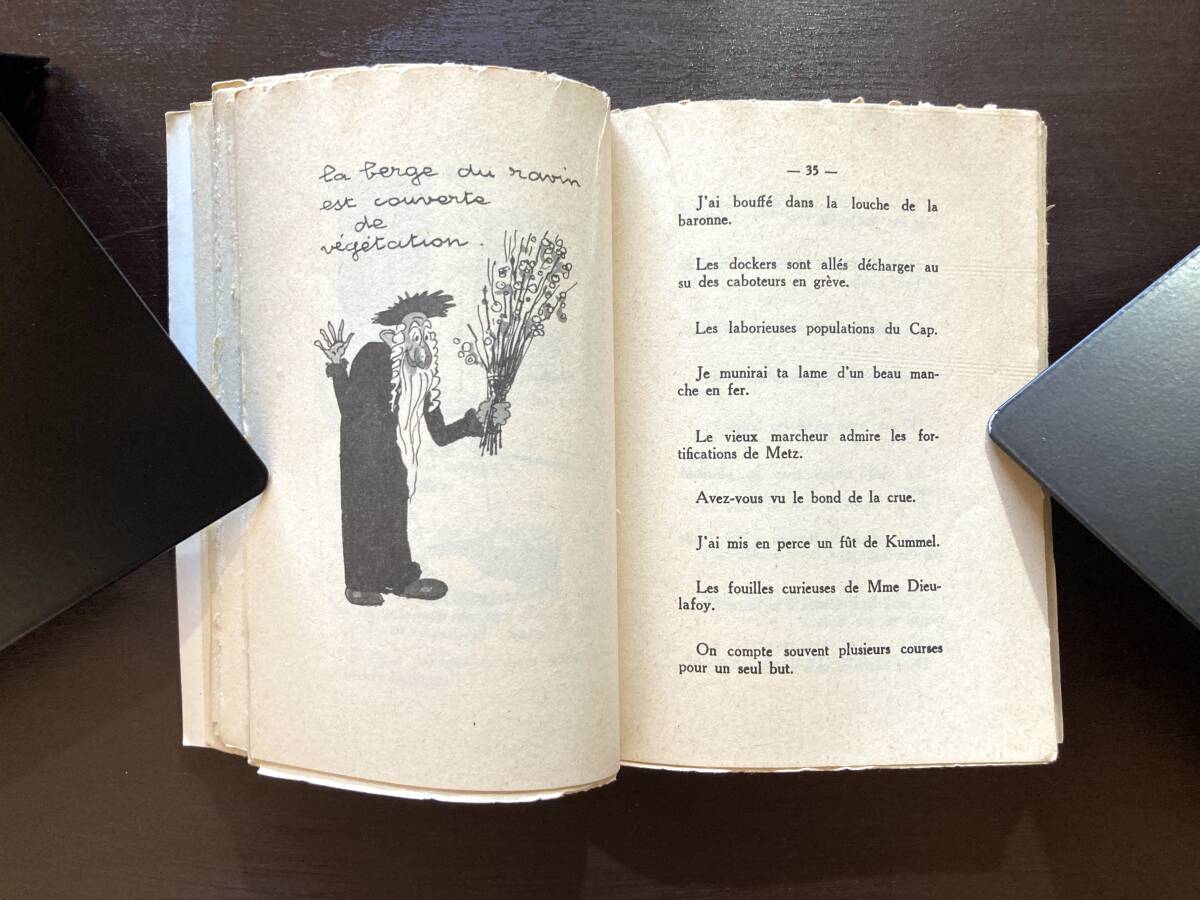 la berge du ravin
est couverte
de
végétation.
— 35 —
J'ai bouffé dans la louche de la
baronne.
Les dockers sont allés décharger au
su des caboteurs en grève.
Les laborieuses populations du Cap.
Je munirai ta lame d'un beau man-
che en fer.
Le vieux marcheur admire les for-
tifications de Metz.
Avez-vous vu le bond de la crue.
J'ai mis en perce un fût de Kummel.
Les fouilles curieuses de Mme Dieu-
lafoy.
On compte souvent plusieurs courses
pour un seul but.